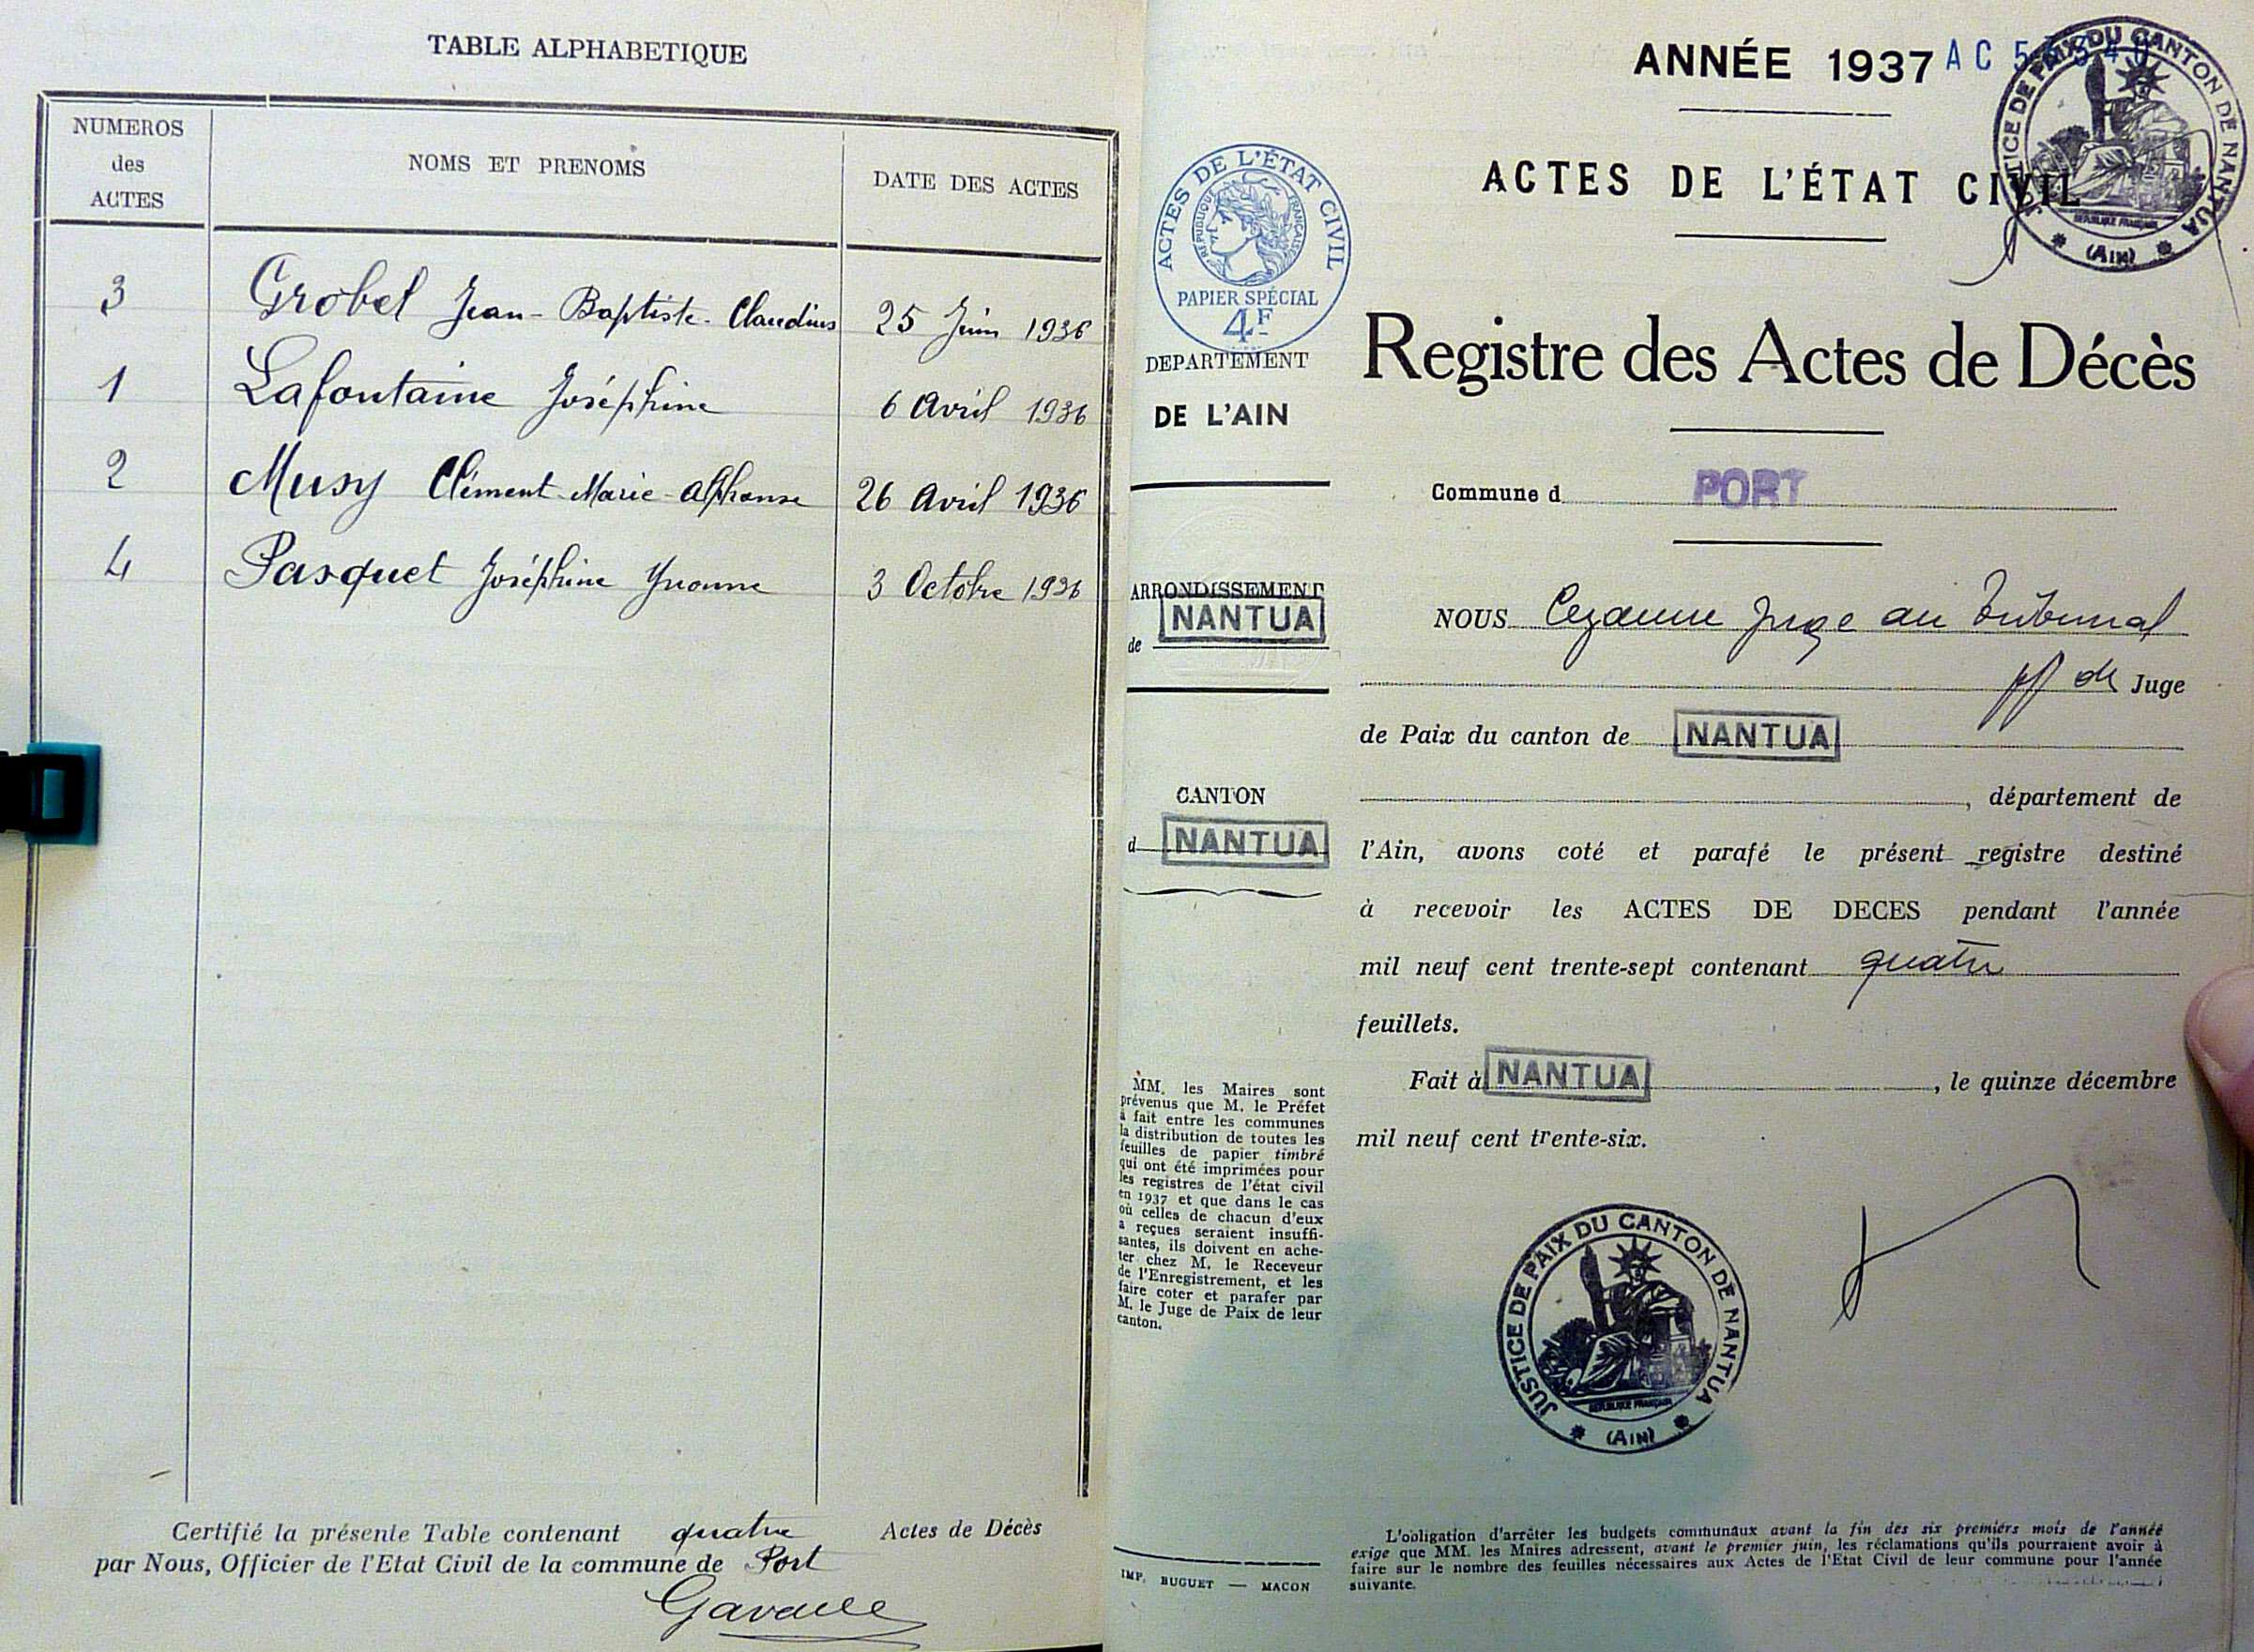 TABLE ALPHABETIQUE
NUMEROS
des
ACTES
NOMS ET PRENOMS
DATE DES ACTES
3 Grobel Jean-Baptiste-Claudius 25 Juin 1936
1 Lafontaine Joséphine 6 Avril 1936
2 Musy Clément-Marie-Alphonse 26 Avril 1936
4 Pasquet Joséphine Yvonne 3 Octobre 1936
Certifié la présente Table contenant quatre Actes de Décès
par Nous, Officier de l'Etat Civil de la commune de Port
ANNÉE 1937
ACTES DE L'ÉTAT CIVIL
JUSTICE DE PAIX DU CANTON DE NANTUA
REPUBLIQUE FRANÇAISE
(AIN)
ACTES DE L'ÉTAT CIVIL
RÉPUBLIQUE FRANÇAISE
PAPIER SPÉCIAL
4F
DEPARTEMENT
DE L'AIN
ARRONDISSEMENT
de NANTUA
CANTON
d NANTUA
MM. les Maires sont
prévenus que M. le Préfet
a fait entre les communes
la distribution de toutes les
feuilles de papier timbré
qui ont été imprimées pour
les registres de l'état civil
en 1937 et que dans le cas
où celles de chacun d'eux
a reçues seraient insuffi-
santes, ils doivent en ache-
ter chez M. le Receveur
de l'Enregistrement, et les
faire coter et parafer par
M. le Juge de Paix de leur
canton.
IMP. BUGUET — MACON
Registre des Actes de Décès
Commune d PORT
NOUS Cezanne Juge au Tribunal
de Juge
de Paix du canton de NANTUA
, département de
l'Ain, avons coté et parafé le présent registre destiné
à recevoir les ACTES DE DECES pendant l'année
mil neuf cent trente-sept contenant quatre
feuillets.
Fait à NANTUA, le quinze décembre
mil neuf cent trente-six.
JUSTICE DE PAIX DU CANTON DE NANTUA
REPUBLIQUE FRANÇAISE
(AIN)
L'obligation d'arrêter les budgets communaux avant la fin des six premiers mois de l'année
exige que MM. les Maires adressent, avant le premier juin, les réclamations qu'ils pourraient avoir à
faire sur le nombre des feuilles nécessaires aux Actes de l'Etat Civil de leur commune pour l'année
suivante.